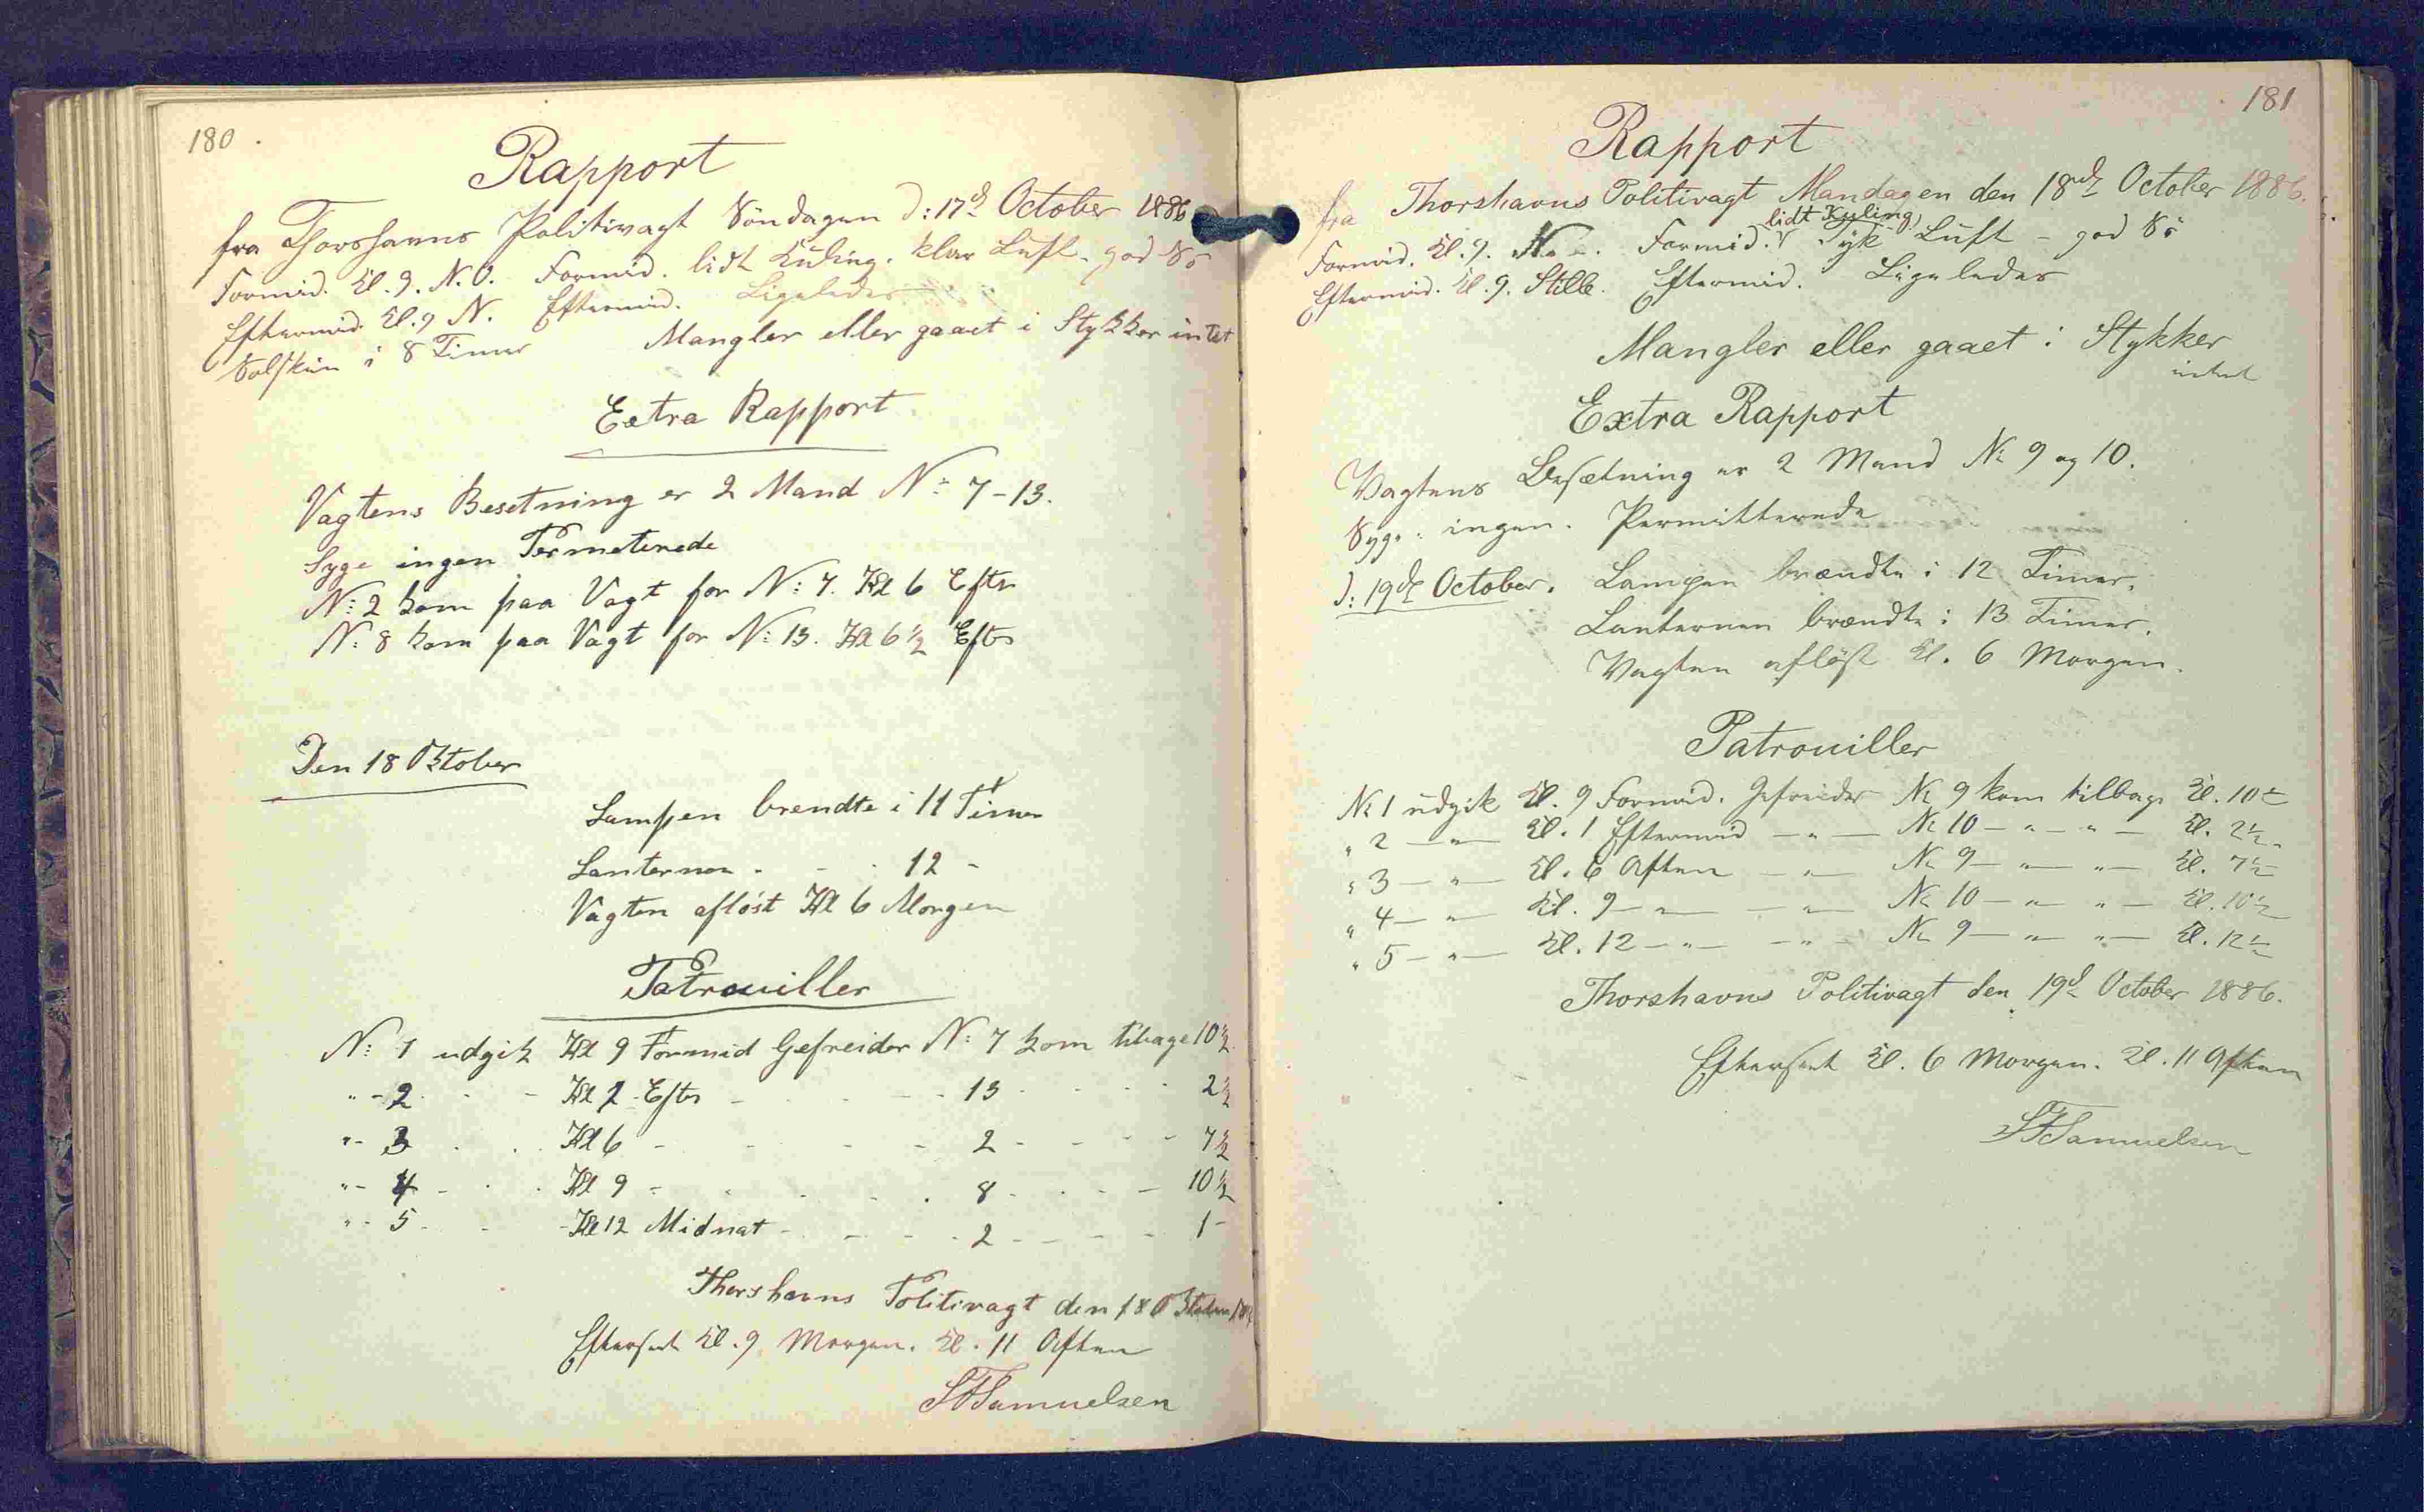 180
Rapport
fra Thorshavns Politivagt Söndagen D: 17d October 1886
Formid. Kl. 9. N.O. Formid. lidt Kuling. klar Luft. god Sö
Eftermid. Kl. 9 N. Eftermid. Ligeledes
Solskin i 8 Timer Mangler eller gaaet i Stykker intet
Extra Rapport
Vagtens Besetning er 2 Mand No 7-13.
Syge ingen Permeterede
No: 2 kom paa Vagt for No: 7. Kl 6 Eftr
No: 8 kom paa Vagt for No: 13. Kl 6 1/2 Eftr
Den 18 Oktober
Lampen brendte i 11 Timer
Lanternen - - - 12 -
Vagten aflöst Kl 6 Morgen
Patrouiller
No: 1 udgik Kl 9 Formid Gefreider No: 7 kom tilbage 10 1/2
" - 2 - - Kl 1 - Eftr - - - 13 - - - 2 1/2
" - 3 - - Kl 6 - - - - 2 - - - 7 1/2
" - 4 - - Kl 9 - - - - 8 - - - 10 1/2
" - 5 - - Kl 12 Midnat - - - 2 - - - 1 -
Thorshavns Politivagt den 18 Oktober
Efterset Kl. 9 Morgen. Kl. 11 Aften
Samuelsen
181
Rapport
fra Thorshavns Politivagt Mandagen den 18de October 1886.
Formid. Kl. 9. Formid. lidt Kuling, Tyk Luft - god Sö
Eftermid. Kl. 9. Stille. Eftermid. Ligeledes
Mangler eller gaaet i Stykker
intet
Extra Rapport
Vagtens Besætning er 2 Mand No 9 og 10.
Syge: ingen. Permitterede
D: 19de October. Lampen brændte i 12 Timer.
Lanternen brændte i 13 Timer.
Vagten aflöst Kl. 6 Morgen.
Patrouiller
No 1 udgik Kl. 9 Formid. Gefreider No 9 kom tilbage Kl. 10 1/2
" 2 — " — Kl. 1 Eftermid — " — No 10 — " — " — Kl. 2 1/2
" 3 — " — Kl. 6 Aften — " — No 9 — " — " — Kl. 7 1/2
" 4 — " — Kl. 9 — " — — " — No 10 — " — " — Kl. 10 1/2
" 5 — " — Kl. 12 — " — — " — No 9 — " — " — Kl. 12 1/2
Thorshavns Politivagt den 19de October 1886.
Efterset Kl. 6 Morgen. Kl. 11 Aften
Samuelsen